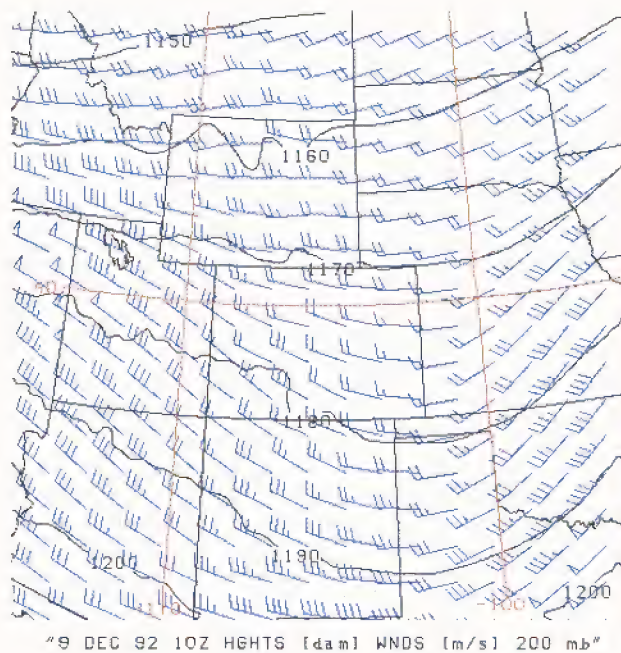 1150
1160
1170
40
1180
1190
1200
1200
-110
-100
"9 DEC 92 10Z HGHTS [dam] WNDS [m/s] 200 mb"